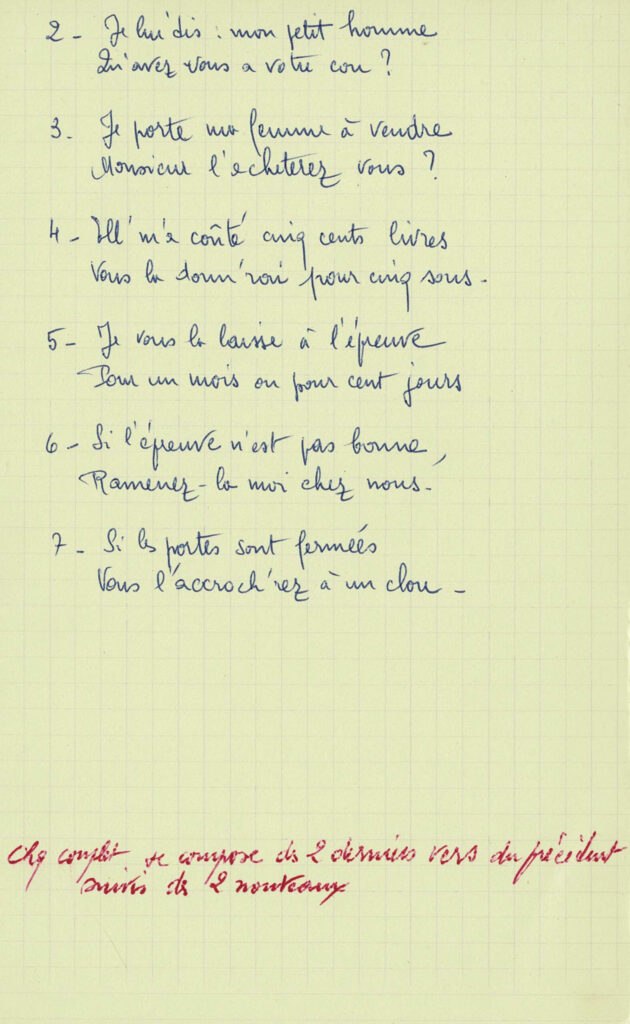 2 - Je lui dis : mon petit homme
Qu'avez vous a votre cou ?
3. Je porte ma femme à vendre
Monsieur l'acheterez vous ?
4 - Ell' m'a coûté cinq cents livres
Vous la donn'rai pour cinq sous.
5 - Je vous la laisse à l'épreuve
Pour un mois ou pour cent jours
6 - Si l'épreuve n'est pas bonne,
Ramenez-la moi chez nous.
7 - Si les portes sont fermées
Vous l'accroch'rez à un clou -
Chq couplet se compose des 2 derniers vers du précédent
suivis de 2 nouveaux